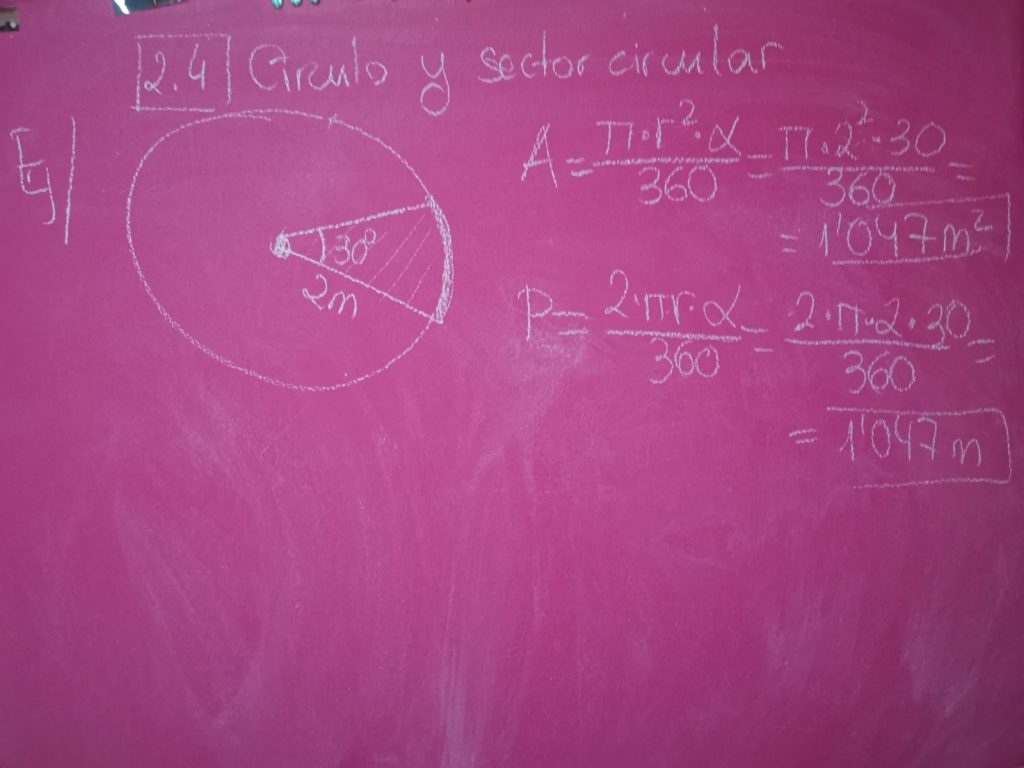 2.4 Círculo y sector circular
Ej
30º
2m
A = π·r²·α / 360 = π·2²·30 / 360 =
= 1'047 m²
P = 2·π·r·α / 360 = 2·π·2·30 / 360 =
= 1'047 m